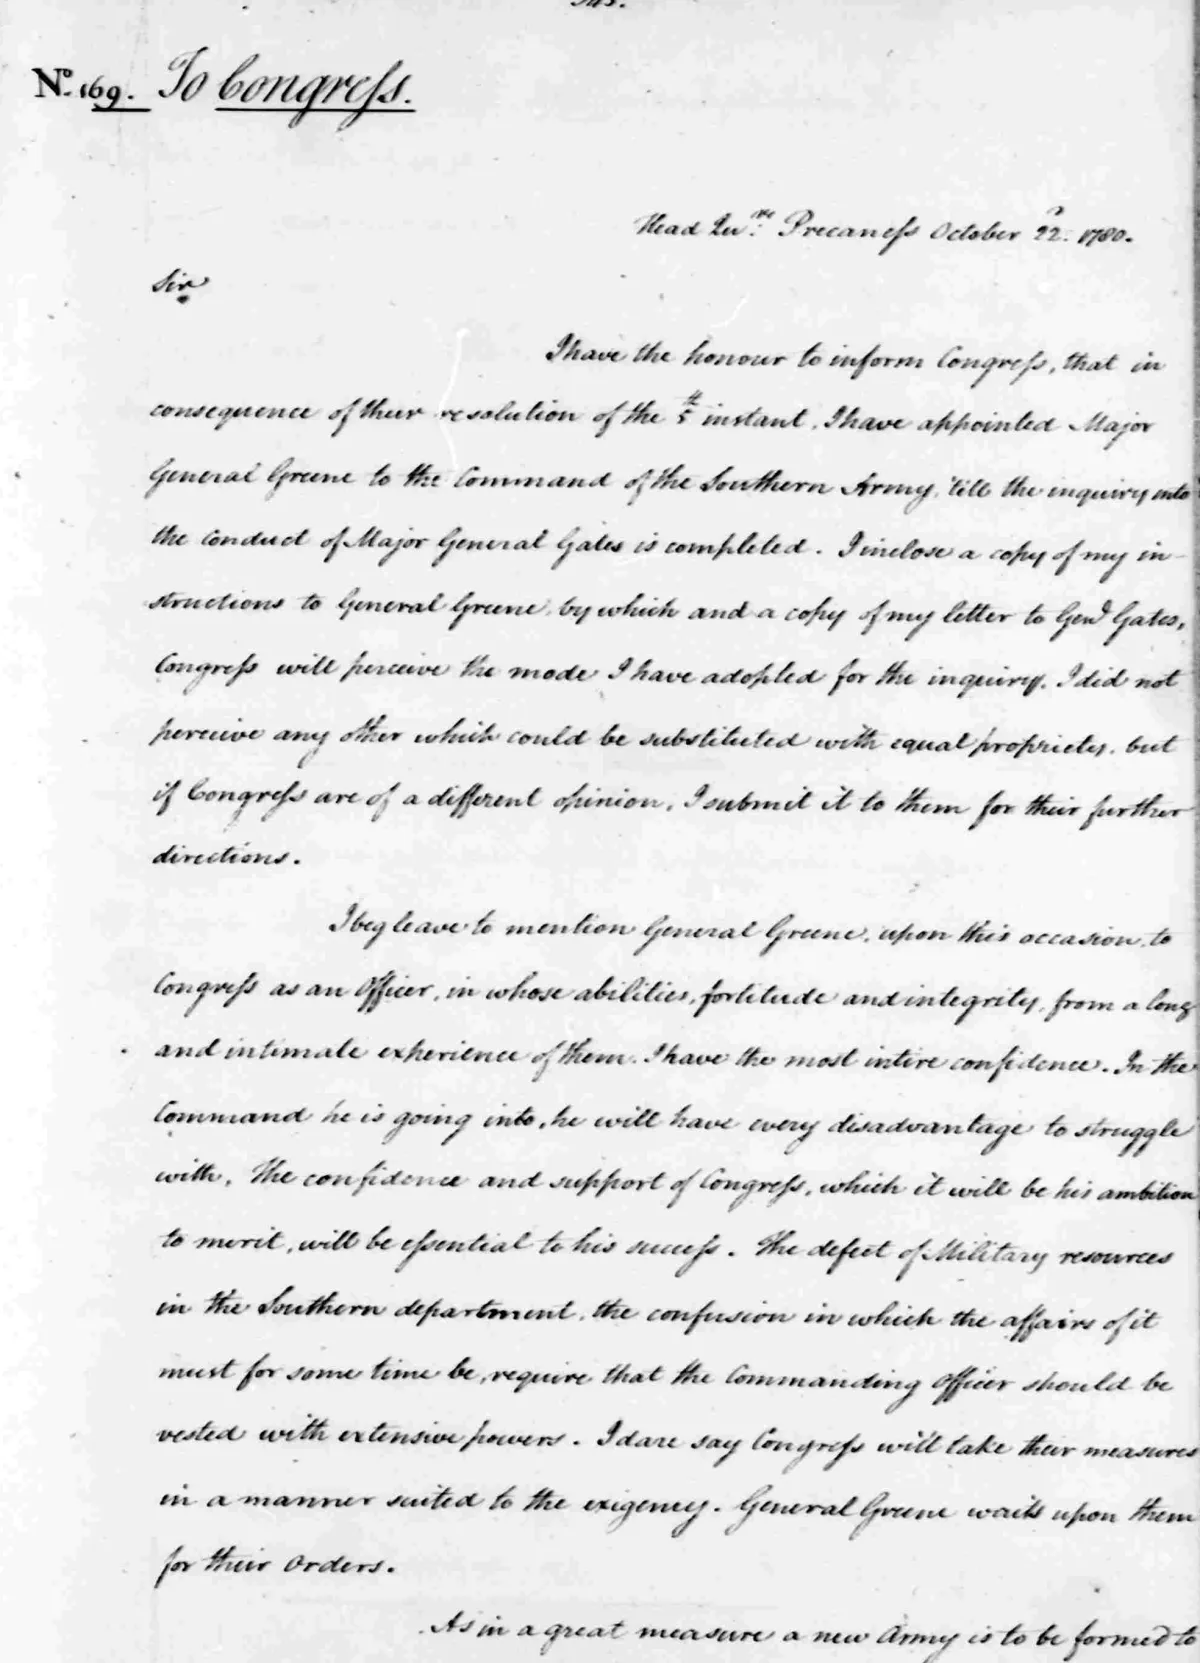 No. 169. To Congress.
Head Qurs. Precaness October 22d. 1780.
Sir
I have the honour to inform Congress, that in
consequence of their resolution of the 5th instant, I have appointed Major
General Greene to the Command of the Southern Army, 'till the inquiry into
the conduct of Major General Gates is completed. I inclose a copy of my in-
structions to General Greene, by which and a copy of my letter to Genl Gates,
Congress will perceive the mode I have adopted for the inquiry. I did not
perceive any other which could be substituted with equal propriety, but
if Congress are of a different opinion, I submit it to them for their further
directions.
I beg leave to mention General Greene, upon this occasion, to
Congress as an Officer, in whose abilities, fortitude and integrity, from a long
and intimate experience of them, I have the most intire confidence. In the
Command he is going into, he will have every disadvantage to struggle
with. The confidence and support of Congress, which it will be his ambition
to merit, will be essential to his success. The defect of Military resources
in the Southern department, the confusion in which the affairs of it
must for some time be, require that the Commanding Officer should be
vested with extensive powers. I dare say Congress will take their measures
in a manner suited to the exigency. General Greene waits upon them
for their Orders.
As in a great measure a new Army is to be formed to